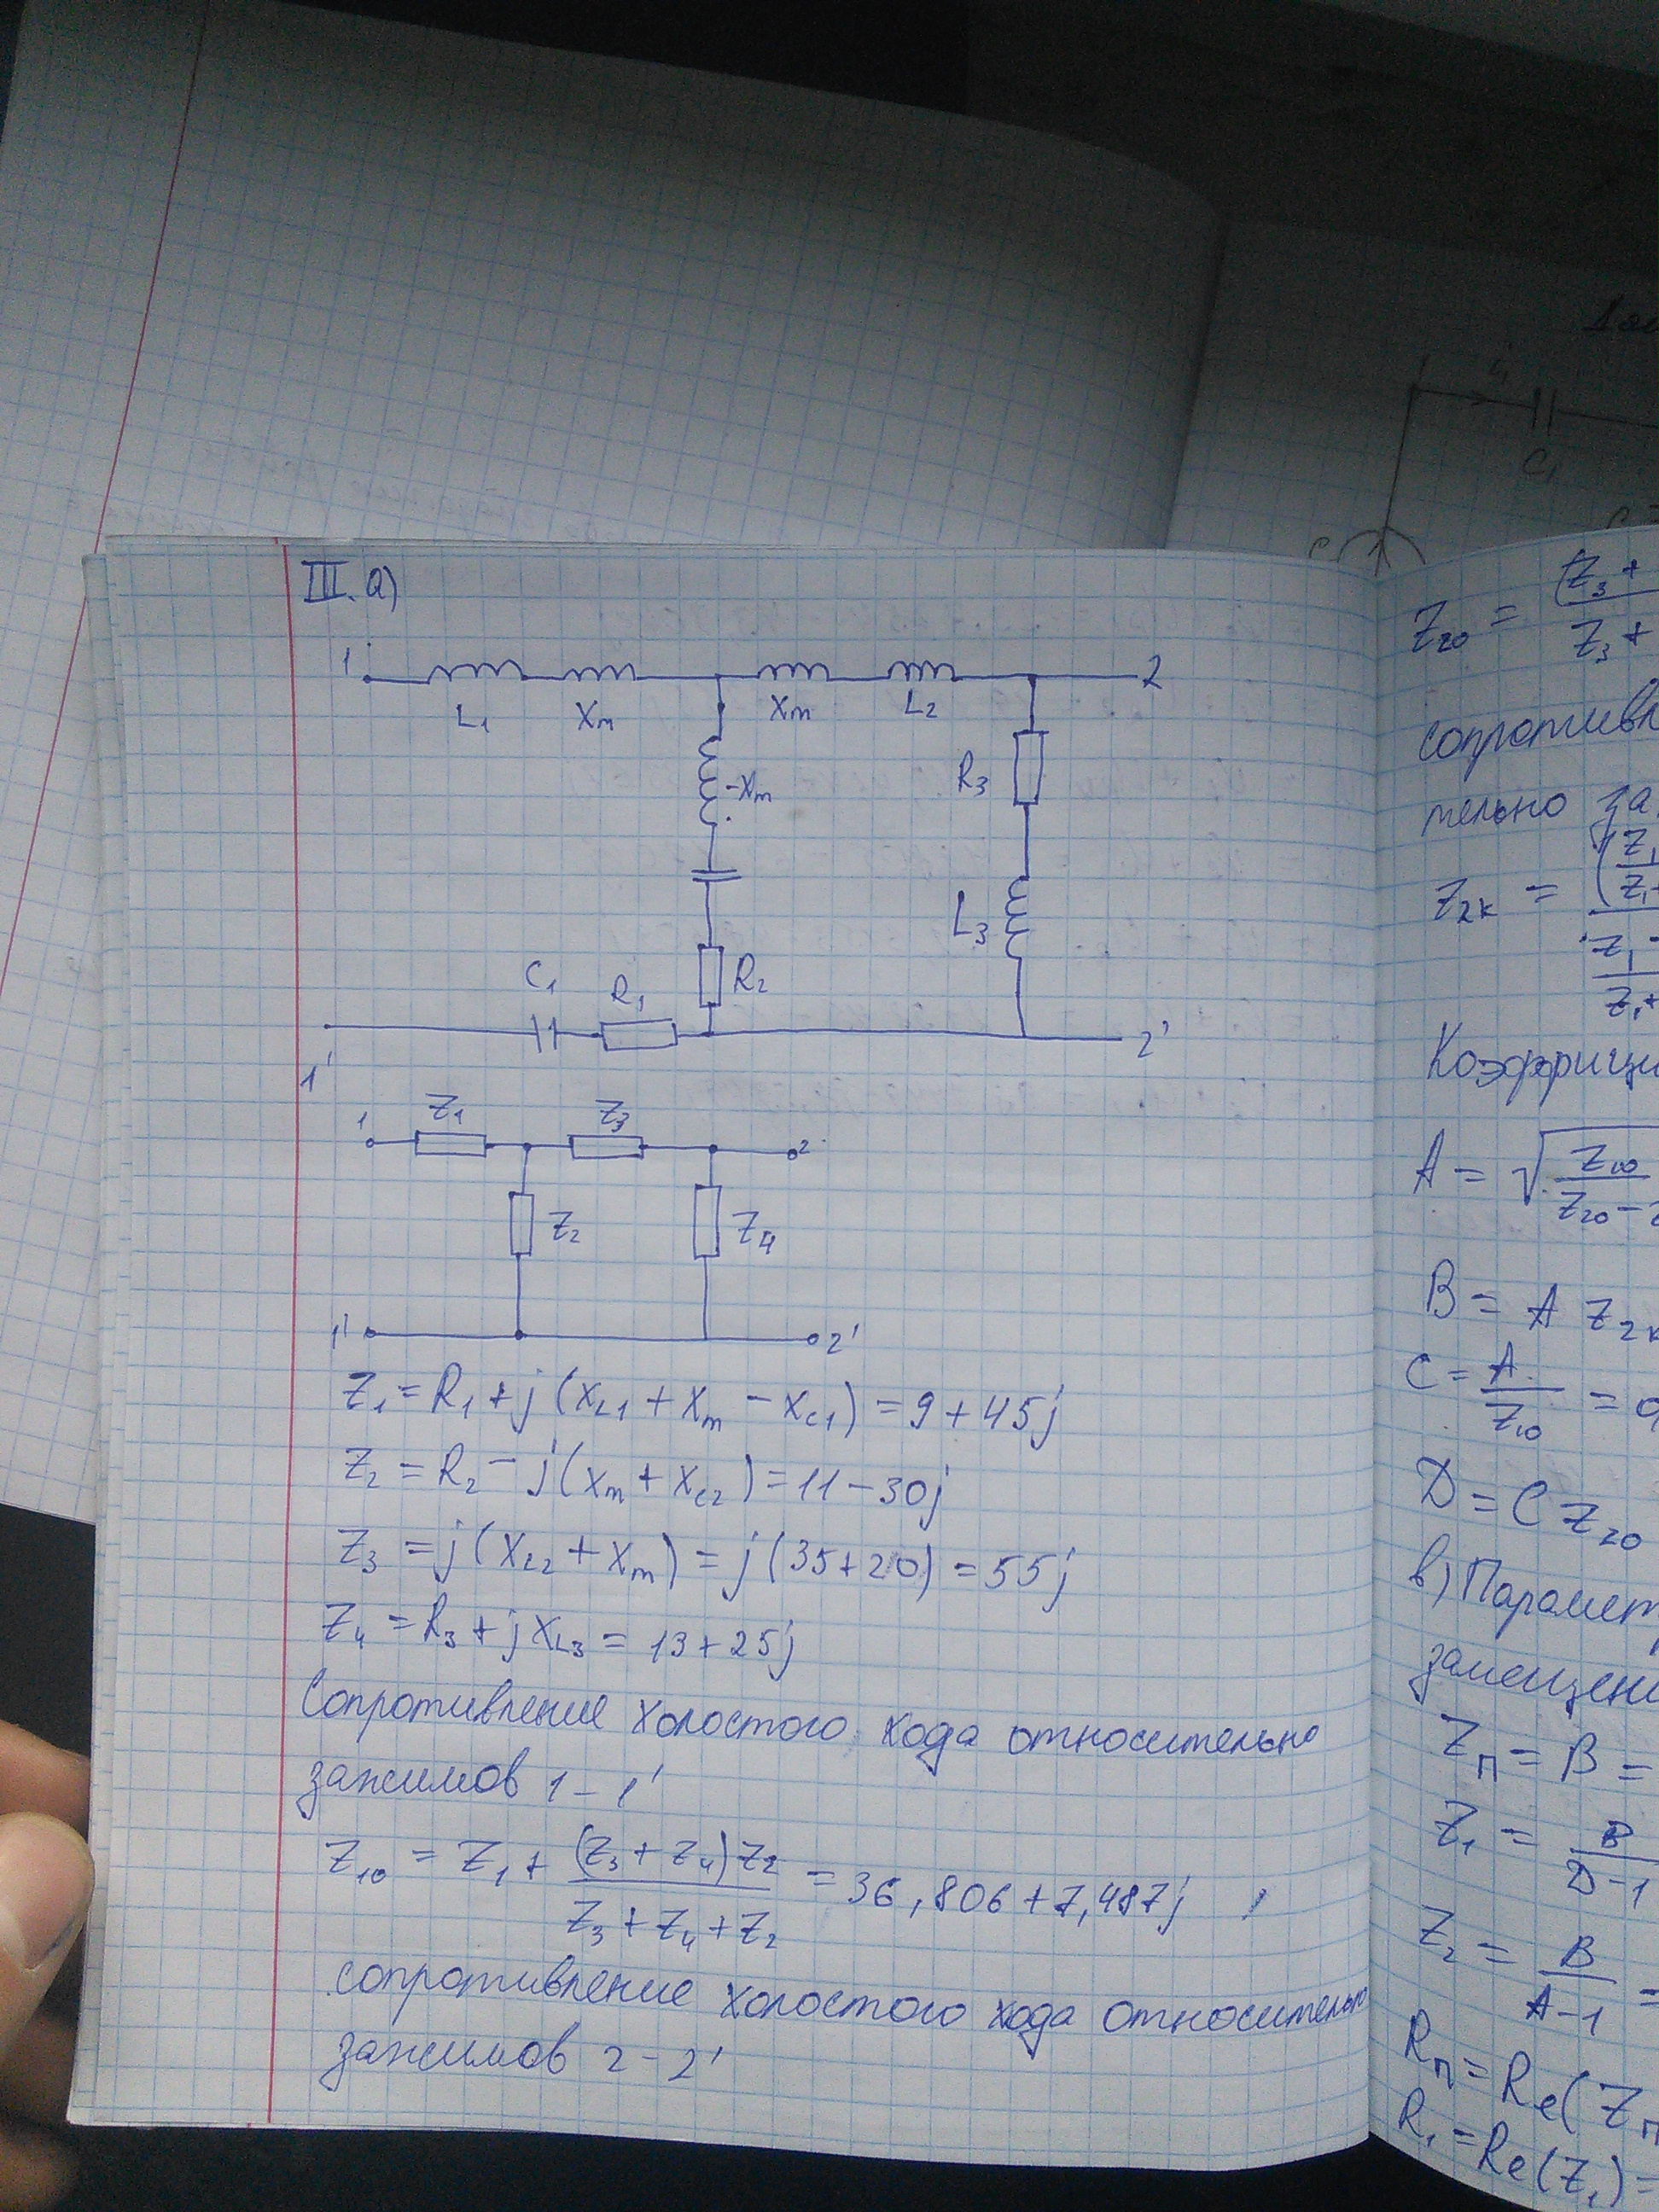 III. а)
1 2
L₁ Xm Xm L₂
-Xm R₃
L₃
C₁ R₁ R₂
1' 2'
Z₁ Z₃
1 2
Z₂ Z₄
1' 2'
Z₁ = R₁ + j (X_L1 + Xm - X_C1) = 9 + 45j
Z₂ = R₂ - j (Xm + X_C2) = 11 - 30j
Z₃ = j (X_L2 + Xm) = j (35+20) = 55j
Z₄ = R₃ + j X_L3 = 13 + 25j
Сопротивление холостого хода относительно
зажимов 1 - 1'
Z₁₀ = Z₁ + (Z₃ + Z₄) Z₂ / (Z₃ + Z₄ + Z₂) = 36,806 + 7,487j ,
сопротивление холостого хода относительно
зажимов 2 - 2'
C₁
Z₂₀ = (Z₃ +
Z₃ +
тельно
Z₂к = (Z₁
A = √ Z₁₀
Z₂₀ -
B = A Z₂к
C = A / Z₁₀ =
D = C Z₂₀
в)
Zп = B =
Z₁ = B / D-1
Z₂ = B / A-1 =
Rп = Re(Zп
R₁ = Re(Z₁) =